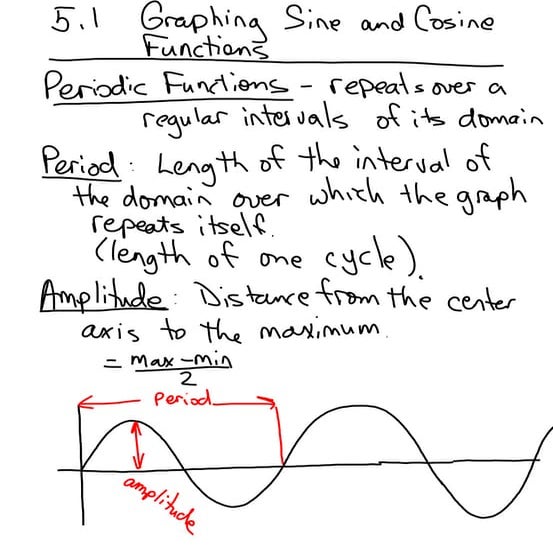 5.1 Graphing Sine and Cosine
Functions
Periodic Functions - repeats over a
regular intervals of its domain
Period: Length of the interval of
the domain over which the graph
repeats itself.
(length of one cycle).
Amplitude: Distance from the center
axis to the maximum.
= max-min
2
Period
amplitude